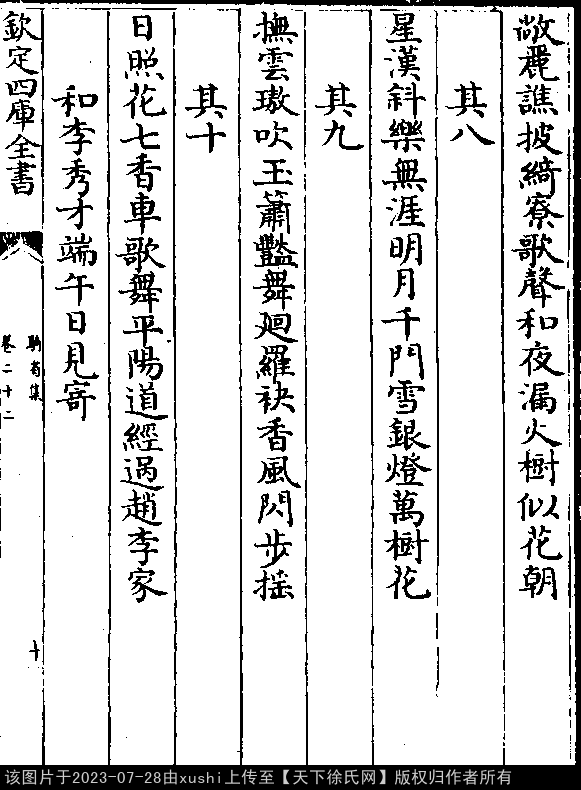 敞麗譙披綺寮歌聲和夜漏火樹似花朝
其八
星漢斜樂無涯明月千門雪銀燈萬樹花
其九
撫雲璈吹玉簫豔舞廻羅袂香風閃步揺
其十
日照花七香車歌舞平陽道經過趙李家
和李秀才端午日見寄
欽定四庫全書
卷二十二
十
该图片于2023-07-28由xushi上传至【天下徐氏网】版权归作者所有